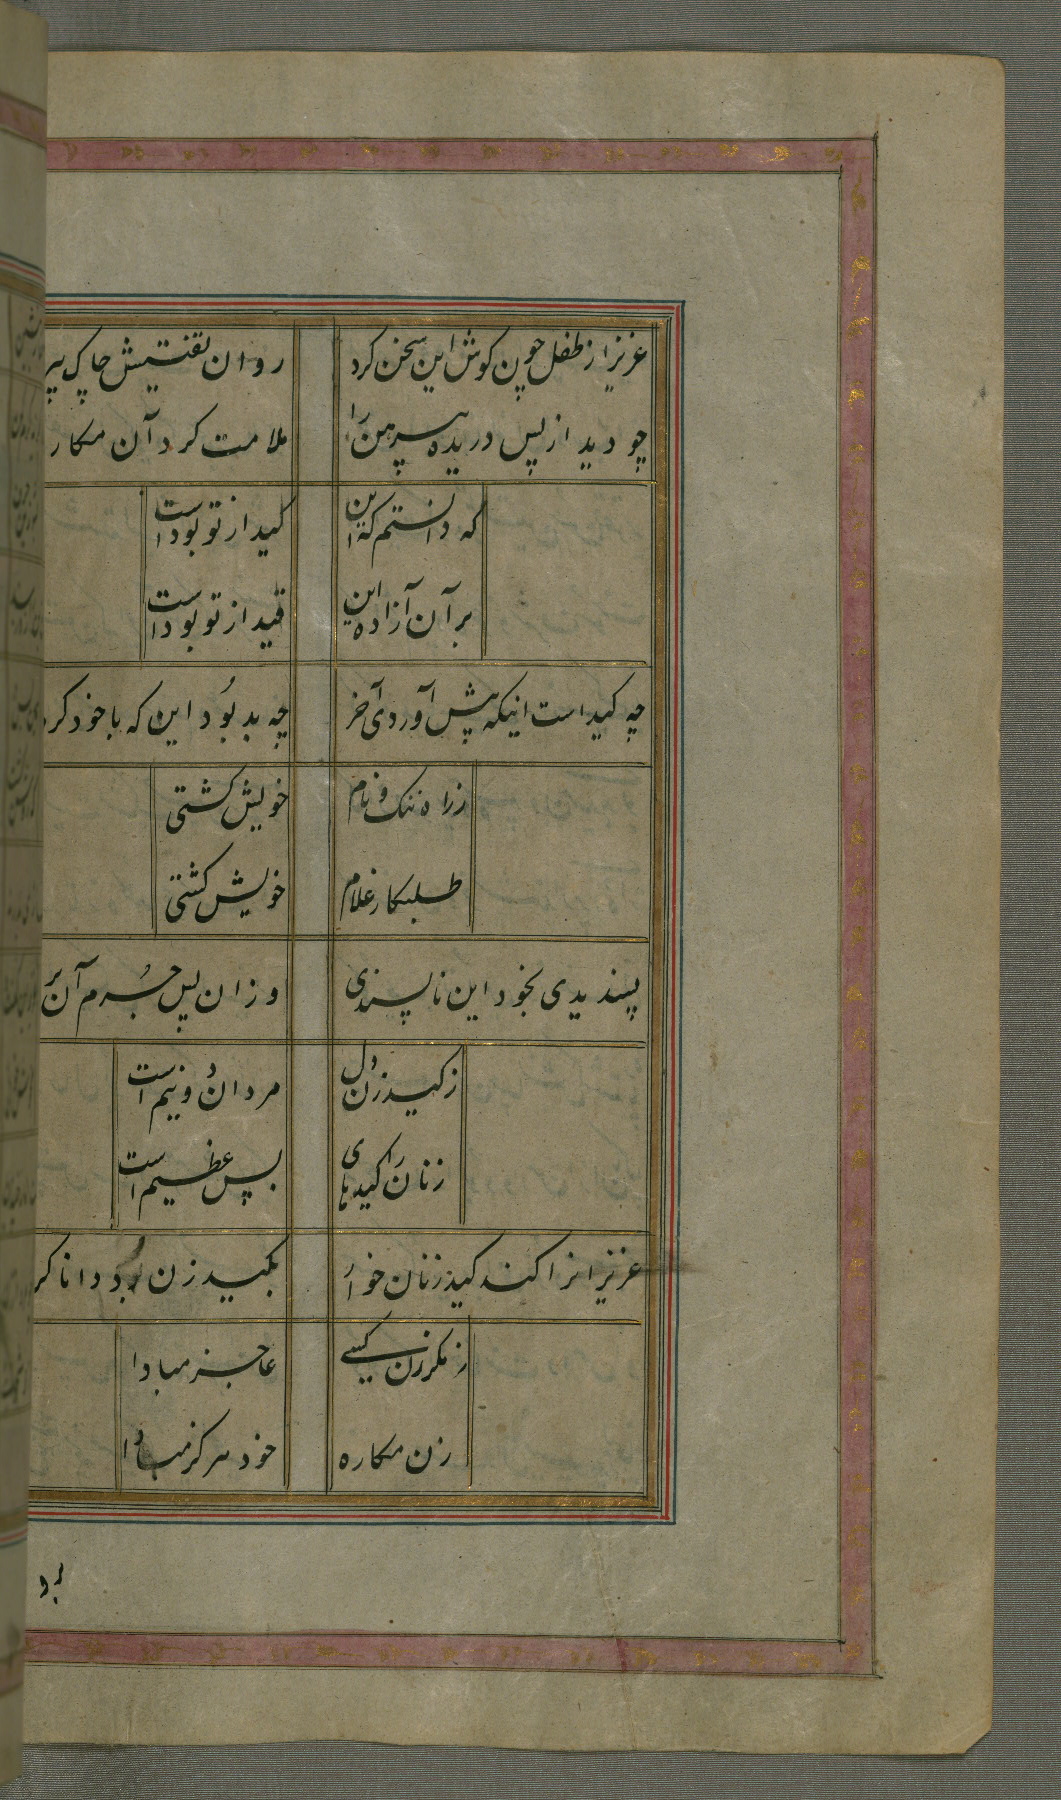 عزیز از طفل چون کوش این سخن کرد روان تفتیش چاک پیر
چو دید از پس دریده پیرهن را ملامت کرد آن مکار
که دانستم که این کید از تو بوداست
بر آن آزاده این قید از تو بوداست
چه کید است اینکه پیش آوردی آخر چه بد بود این که با خود کرد
ز راه ننک و نام خویش کشتی
طلبکار غلام خویش کشتی
پسندیدی بخود این ناپسندی وزان پس جرم آن بر
ز کید زن دل مردان دونیم است
زنان را کیدهای بس عظیم است
عزیزانرا کند کید زنان خوار بکید زن بود دانا کر
ز مکر زن کسی عاجز مبادا
زن مکاره خود هرکز مبادا
برو